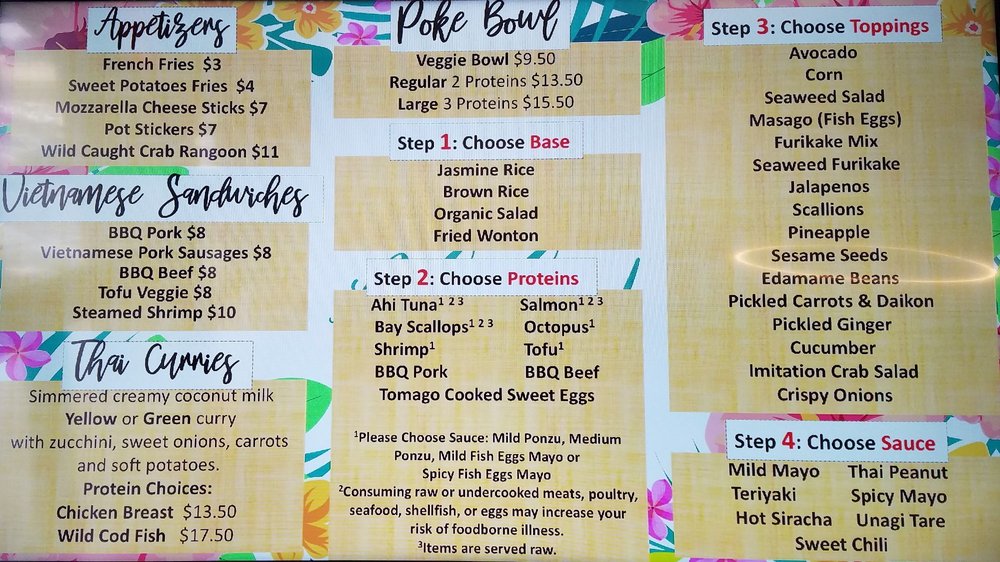 Appetizers
French Fries $3
Sweet Potatoes Fries $4
Mozzarella Cheese Sticks $7
Pot Stickers $7
Wild Caught Crab Rangoon $11
Vietnamese Sandwiches
BBQ Pork $8
Vietnamese Pork Sausages $8
BBQ Beef $8
Tofu Veggie $8
Steamed Shrimp $10
Thai Curries
Simmered creamy coconut milk
Yellow or Green curry
with zucchini, sweet onions, carrots
and soft potatoes.
Protein Choices:
Chicken Breast $13.50
Wild Cod Fish $17.50
Poke Bowl
Veggie Bowl $9.50
Regular 2 Proteins $13.50
Large 3 Proteins $15.50
Step 1: Choose Base
Jasmine Rice
Brown Rice
Organic Salad
Fried Wonton
Step 2: Choose Proteins
Ahi Tuna¹ ² ³ Salmon¹ ² ³
Bay Scallops¹ ² ³ Octopus¹
Shrimp¹ Tofu¹
BBQ Pork BBQ Beef
Tomago Cooked Sweet Eggs
¹Please Choose Sauce: Mild Ponzu, Medium
Ponzu, Mild Fish Eggs Mayo or
Spicy Fish Eggs Mayo
²Consuming raw or undercooked meats, poultry,
seafood, shellfish, or eggs may increase your
risk of foodborne illness.
³Items are served raw.
Step 3: Choose Toppings
Avocado
Corn
Seaweed Salad
Masago (Fish Eggs)
Furikake Mix
Seaweed Furikake
Jalapenos
Scallions
Pineapple
Sesame Seeds
Edamame Beans
Pickled Carrots & Daikon
Pickled Ginger
Cucumber
Imitation Crab Salad
Crispy Onions
Step 4: Choose Sauce
Mild Mayo Thai Peanut
Teriyaki Spicy Mayo
Hot Siracha Unagi Tare
Sweet Chili